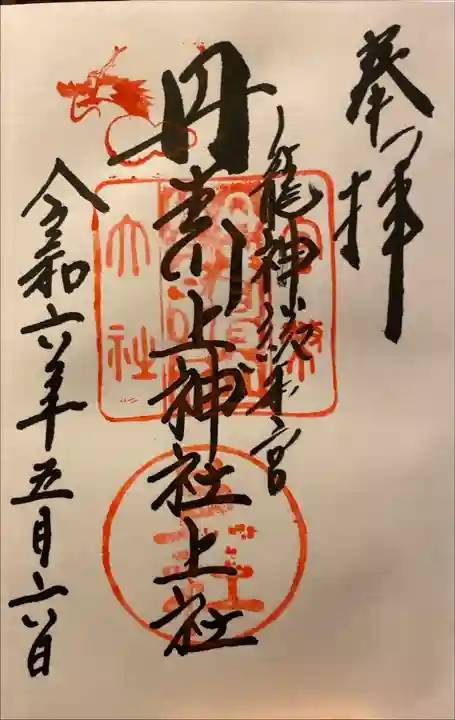 奉拝
龍神総本宮
丹生川上神社上社
令和六年五月六日
大社